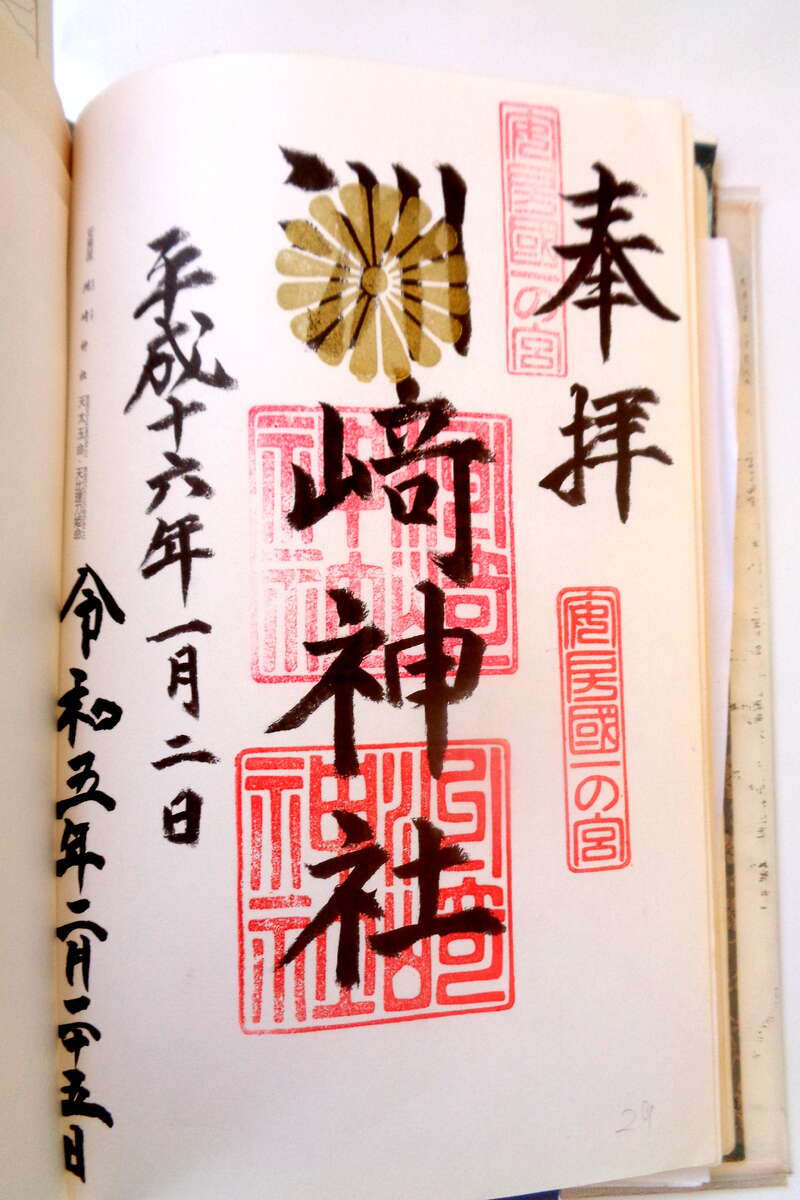 奉拝
安房國一の宮
安房國一の宮
洲﨑神社
洲崎神社
洲崎神社
平成十六年一月二日
令和五年二月二十五日
29